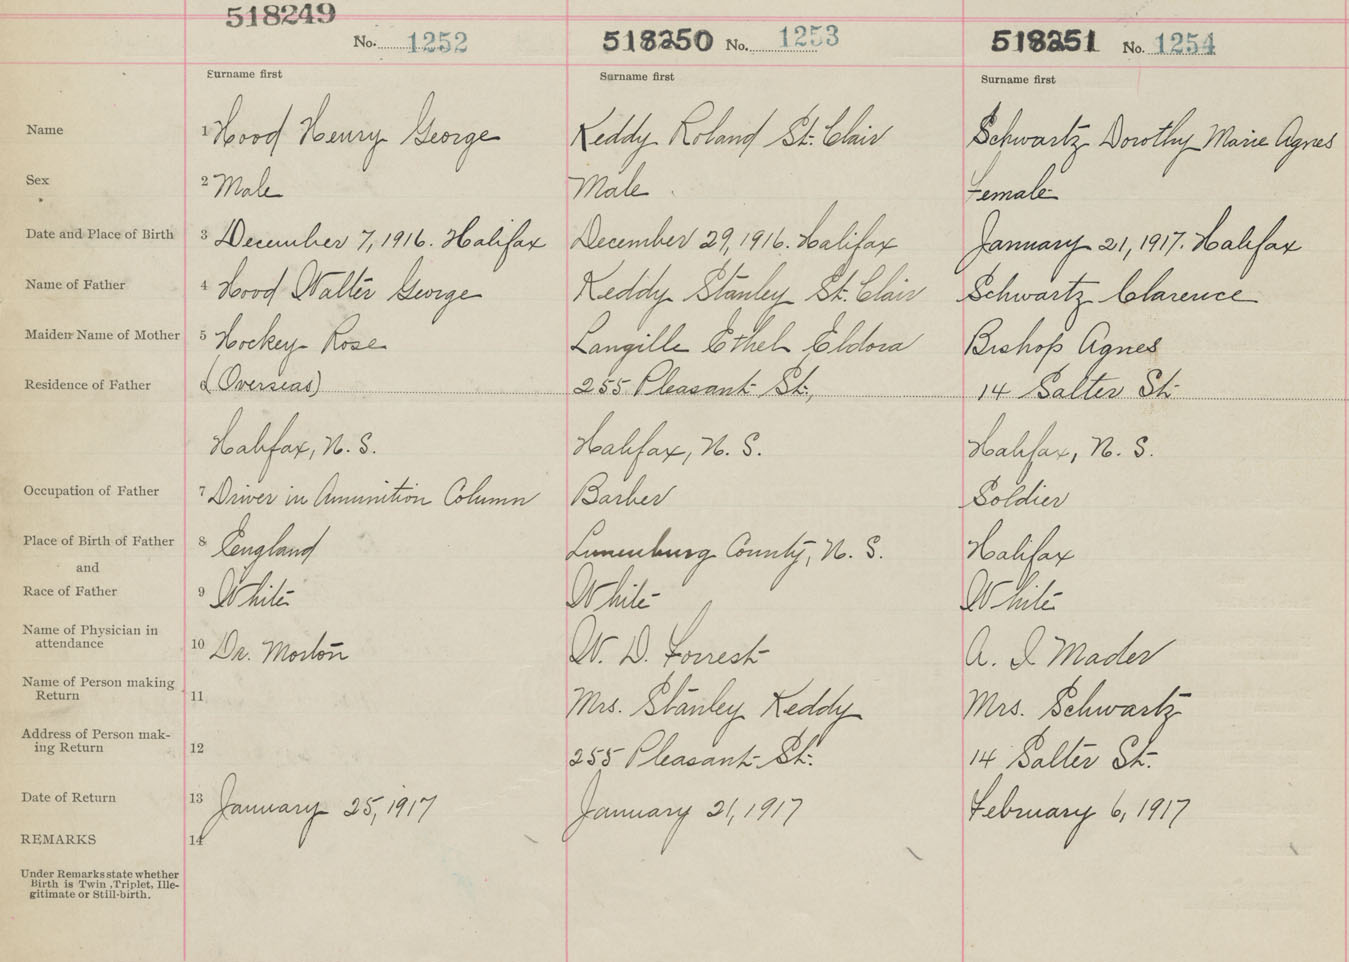 518249
No. 1252
518250 No. 1253
518251 No. 1254
Surname first
Surname first
Surname first
Name 1 Hood Henry George
Keddy Roland St. Clair
Schwartz Dorothy Marie Agnes
Sex 2 Male
Male
Female
Date and Place of Birth 3 December 7, 1916. Halifax
December 29, 1916. Halifax
January 21, 1917. Halifax
Name of Father 4 Hood Walter George
Keddy Stanley St. Clair
Schwartz Clarence
Maiden Name of Mother 5 Hockey Rose
Langille Ethel Eldora
Bishop Agnes
Residence of Father 6 (Overseas)
255 Pleasant St.,
14 Salter St.
Halifax, N. S.
Halifax, N. S.
Halifax, N. S.
Occupation of Father 7 Driver in Amunition Column
Barber
Soldier
Place of Birth of Father 8 England
Lunenburg County, N. S.
Halifax
and
Race of Father 9 White
White
White
Name of Physician in
attendance 10 Dr. Morton
W. D. Forrest
A. I Mader
Name of Person making
Return 11
Mrs. Stanley Keddy
Mrs. Schwartz
Address of Person mak-
ing Return 12
255 Pleasant St.
14 Salter St.
Date of Return 13 January 25, 1917
January 21, 1917
February 6, 1917
REMARKS 14
Under Remarks state whether
Birth is Twin, Triplet, Ille-
gitimate or Still-birth.